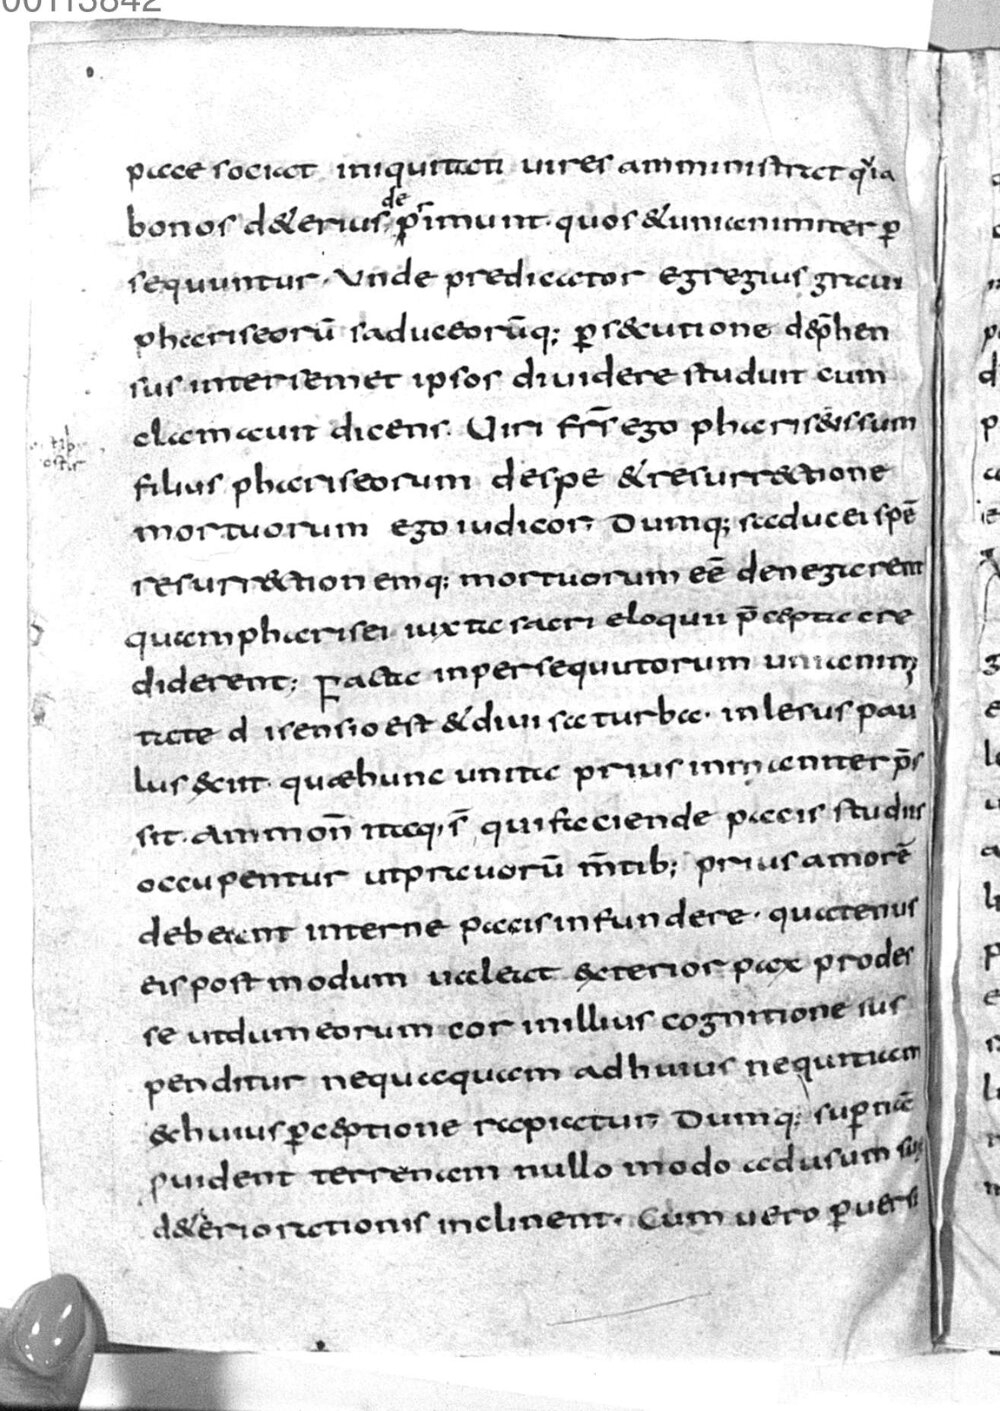 00113842
pace sociat iniquitati uires amministrat quia
bonos d&erius de primunt. quos & unianimiter p̄
sequuntur. Vnde predicator egregius graui
phariseorū saduceorūq; p̄s&cutione dep̄hen
sus inter semet ipsos diuidere studuit cum
clamauit dicens. Viri fr̄s ego pharis&issum
filius phariseorum despe & resurr&tione
mortuorum ego iudicor; Dumq; saducei spē
resurr&tionemq; mortuorum eē denegarent
quam pharisei iuxta sacri eloquii p̄cepta cre
diderent; Facta inpersequutorum unianimi
tate disensio est & diuisa turba. inlesus pau
lus &iit. quæhunc unita prius inmaniter p̄s
sit. Ammoñ itaq; s̄ qui faciende pacis studiis
occupentur utprauorū m̄tib; prius amorē
debeant interne pacis infundere. quatenus
eis post modum ualeat &terior pax prodes
se utdum eorum cor in illius cognitione sus
penditur nequaquam ad huius nequitiam
&huius p̄ceptione rapiatur; Dumq; sup̄nā
puident terrenam nullo modo adusum sue
d&eriorationis inclinent. Cum uero p̄uersi